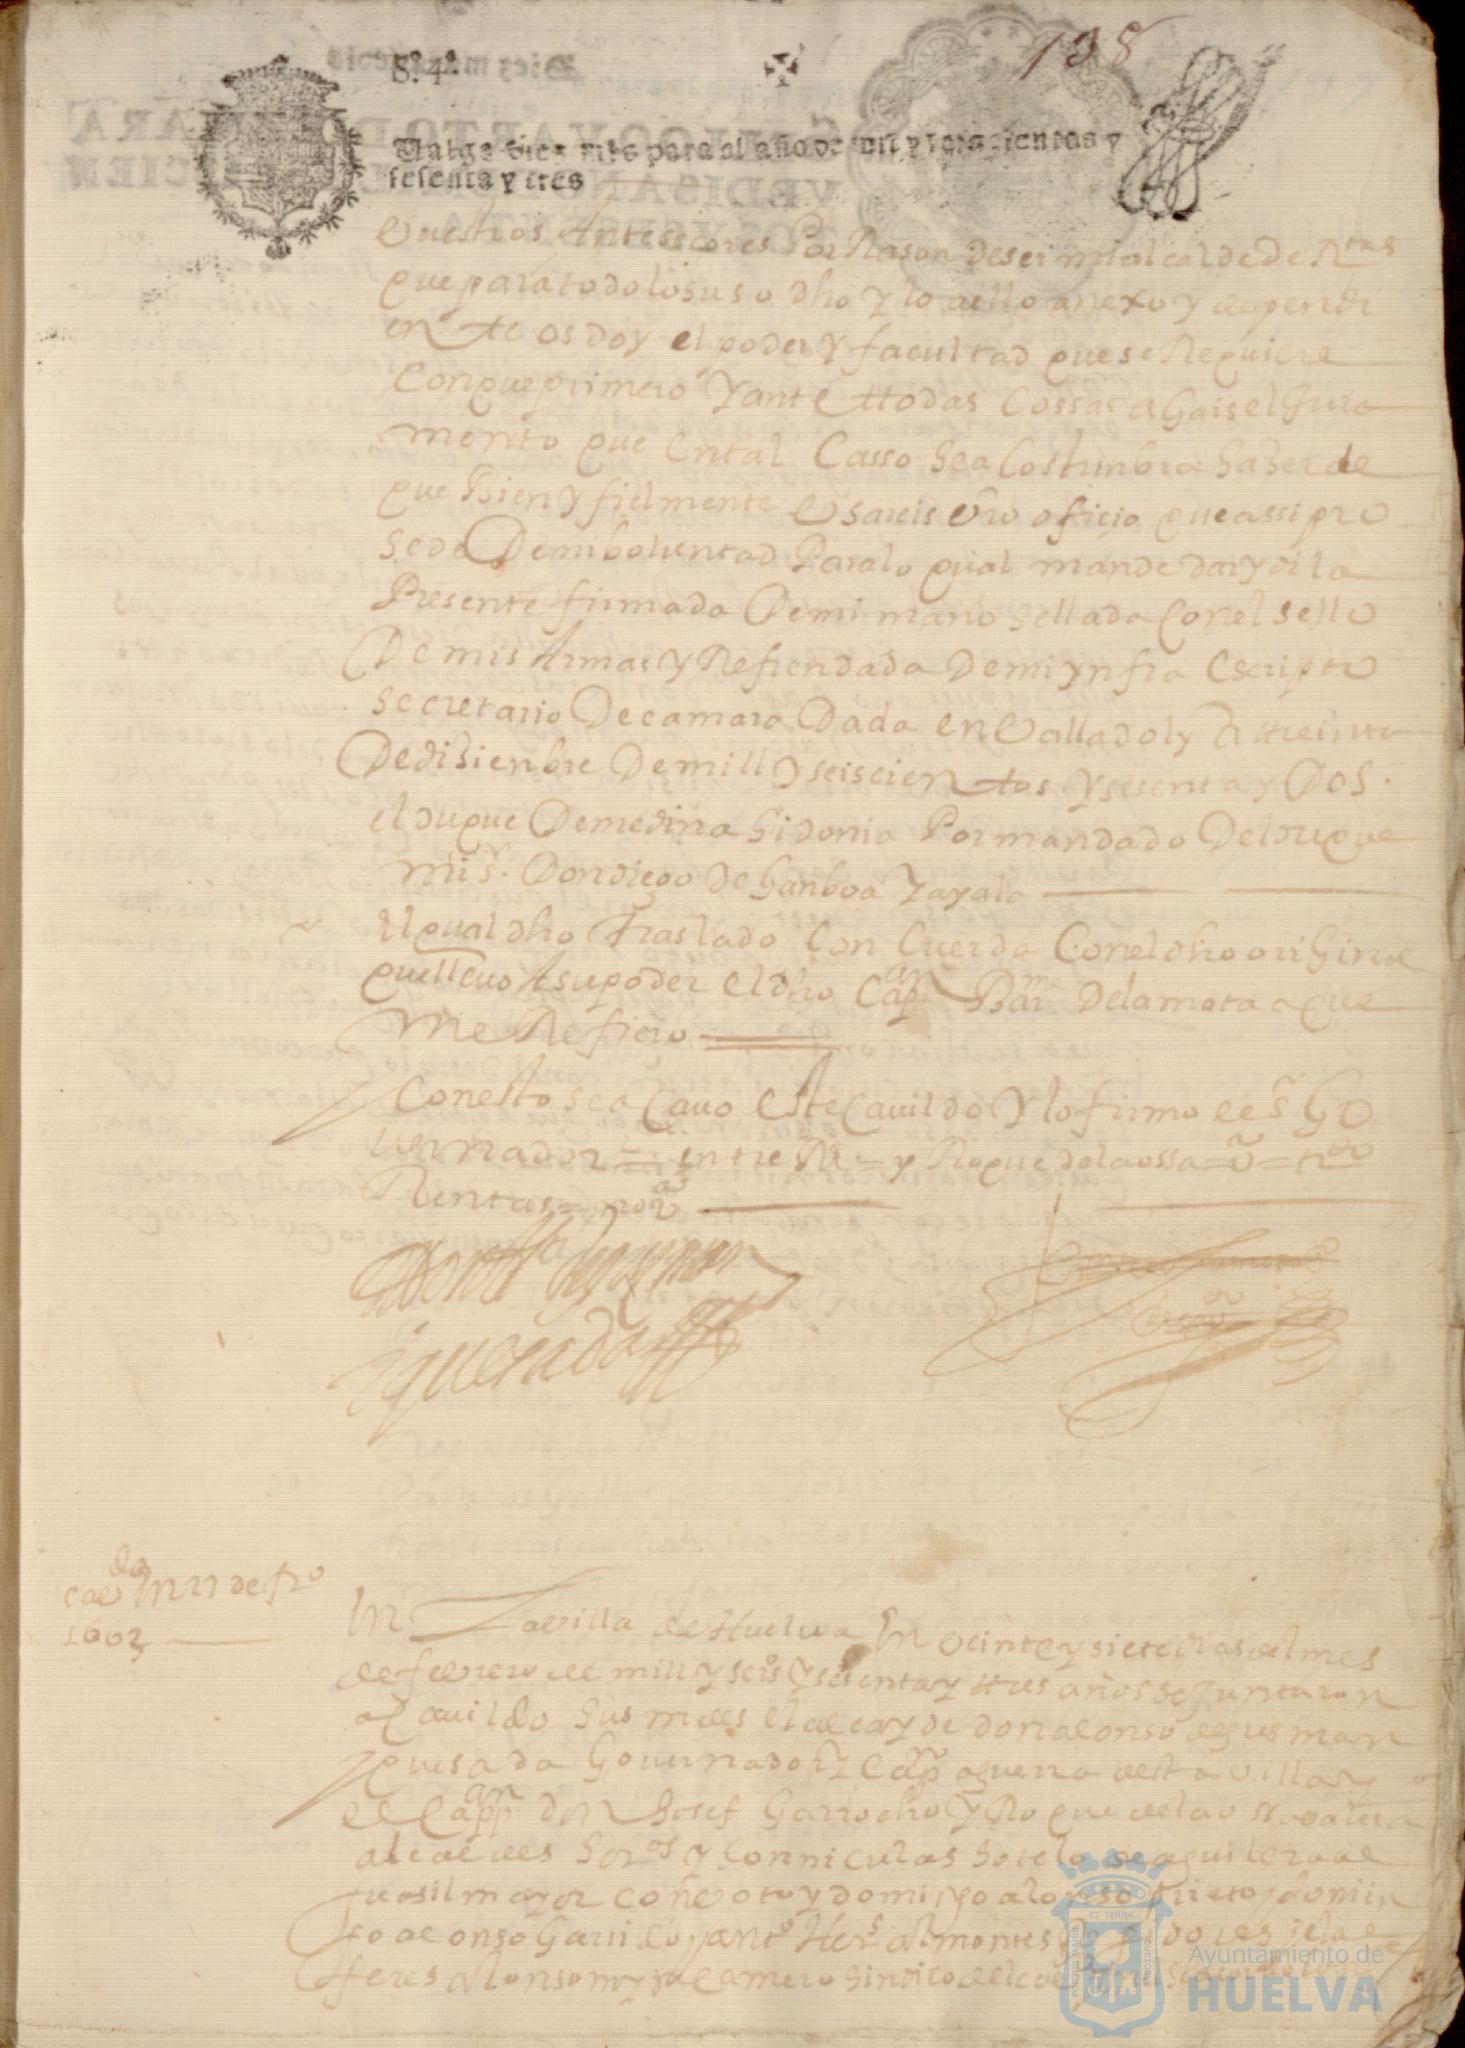 138
S.º 4.º
Valga diez mrs para el año de mil y seiscientos y
sesenta y tres
Vuestros Antesesores Por Rason de ser mi alcalde de Rtas
que para todo lo suso dho y lo a ello anexo y dependi
en te os doy el poder y facultad que se Requiere
Con que primero Y ante ttodas Cossas agais el Jura
mento que En tal Casso se a Costunbra haser de
que Bien y fielmente Vsareis Vro oficio que assi pro
sede De mi boluntad Para lo qual mande dar y di la
Presente firmada De mi mano Sellada Con el sello
De mis Armas y Refrendada De mi ynfra Escripto
Secretario De camara Dada en Valladoly A treinta
De disienbre De mill y seiscien tos y sesenta y Dos.
el duque De medina Sidonia Por mandado Del duque
mi Sr. Don diego de Ganboa Y ayala
El qual dho Traslado Con Cuerda Con el dho original
que lleuo A su poder el dho Capan Barme de la mota a que
Me Refiero
Con esto se a Cauo este Cauildo y lo firmo el Sr Go
vernador = entre Rs = y Roque de la ossa =
Rentas =
quesada
Caudo En 27 de fro
1663
En La villa de Huelva En veinte y siete dias del mes
de febrero de mill y seisos y sesenta y ttres años se Juntaron
a Cauildo Sus mdes el alcayde don alonso de gusman
y quesada Governador y Capn a guerra desta villa y
el Cappan don Josef Garrocho y Roque de la o
alcaldes hordos y don niculas Sotelo de aguilera al
guasil mayor con voto y domingo alonso prieto y domin
go alonso Garrido y anto Hers de montes Rejidores y el al
feres alonso m camero Sindico del
Ayuntamiento de
HUELVA